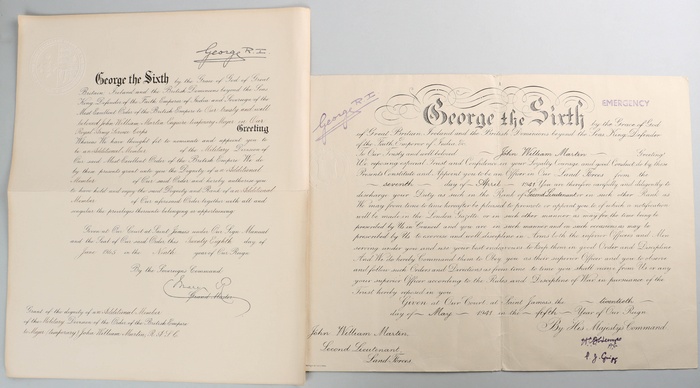 George R.I.
George the Sixth by the Grace of God of Great
Britain, Ireland and the British Dominions beyond the Seas
King, Defender of the Faith, Emperor of India and Sovereign of the
Most Excellent Order of the British Empire to Our trusty and well
beloved John William Martin Esquire temporary Major in Our
Royal Army Service Corps
Greeting
Whereas We have thought fit to nominate and appoint you to
be an Additional Member of the Military Division of
Our said Most Excellent Order of the British Empire We do
by these presents grant unto you the Dignity of an Additional
Member of Our said Order and hereby authorise you
to have hold and enjoy the said Dignity and Rank of an Additional
Member of Our aforesaid Order together with all and
singular the privileges thereunto belonging or appertaining
Given at Our Court at Saint James's under Our Sign Manual
and the Seal of Our said Order this Twenty Eighth day of
June 1945 in the Ninth year of Our Reign
By the Sovereign's Command
Grand Master
Grant of the dignity of an Additional Member
of the Military Division of the Order of the British Empire
to Major (temporary) John William Martin, R.A.S.C.
George R.I.
EMERGENCY
George the Sixth by the Grace of God
of Great Britain, Ireland and the British Dominions beyond the Seas King, Defender
of the Faith, Emperor of India &c.
To Our Trusty and well beloved John William Martin Greeting
We reposing especial Trust and Confidence in your Loyalty, Courage, and good Conduct, do by these
Presents Constitute and Appoint you to be an Officer in Our Land Forces from the
seventh day of April 1941. You are therefore carefully and diligently to
discharge your Duty as such in the Rank of Second Lieutenant or in such other Rank as
We may from time to time hereafter be pleased to promote or appoint you to of which a notification
will be made in the London Gazette, or in such other manner as may for the time being be
prescribed by Us in Council and you are in such manner and on such occasions as may be
prescribed by Us to exercise and well discipline in Arms both the inferior Officers and Men
serving under you and use your best endeavours to keep them in good Order and Discipline
And We do hereby Command them to Obey you as their superior Officer and you to observe
and follow such Orders and Directions as from time to time you shall receive from Us or any
your superior Officer according to the Rules and Discipline of War in pursuance of the
Trust hereby reposed in you
Given at Our Court at Saint James's the twentieth
day of May 1941 in the fifth Year of Our Reign
By His Majesty's Command
John William Martin
Second Lieutenant
Land Forces